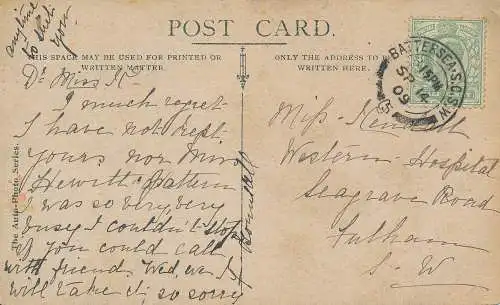 anytime
to
you.
POST CARD.
THIS SPACE MAY BE USED FOR PRINTED OR
WRITTEN MATTER.
ONLY THE ADDRESS TO
WRITTEN HERE.
BATTERSEA.S.O.S.W
SP 14
09
Dr Miss K
I much regret
I have not kept
yours nor Miss
Hewitt pattern
I was so very very
busy I couldn't stop
if you could call
with friend. Wed,
will take it; so sorry
Miss Kendall
Western Hospital
Seagrave Road
Fulham
S. W
The Auto-Photo Series.